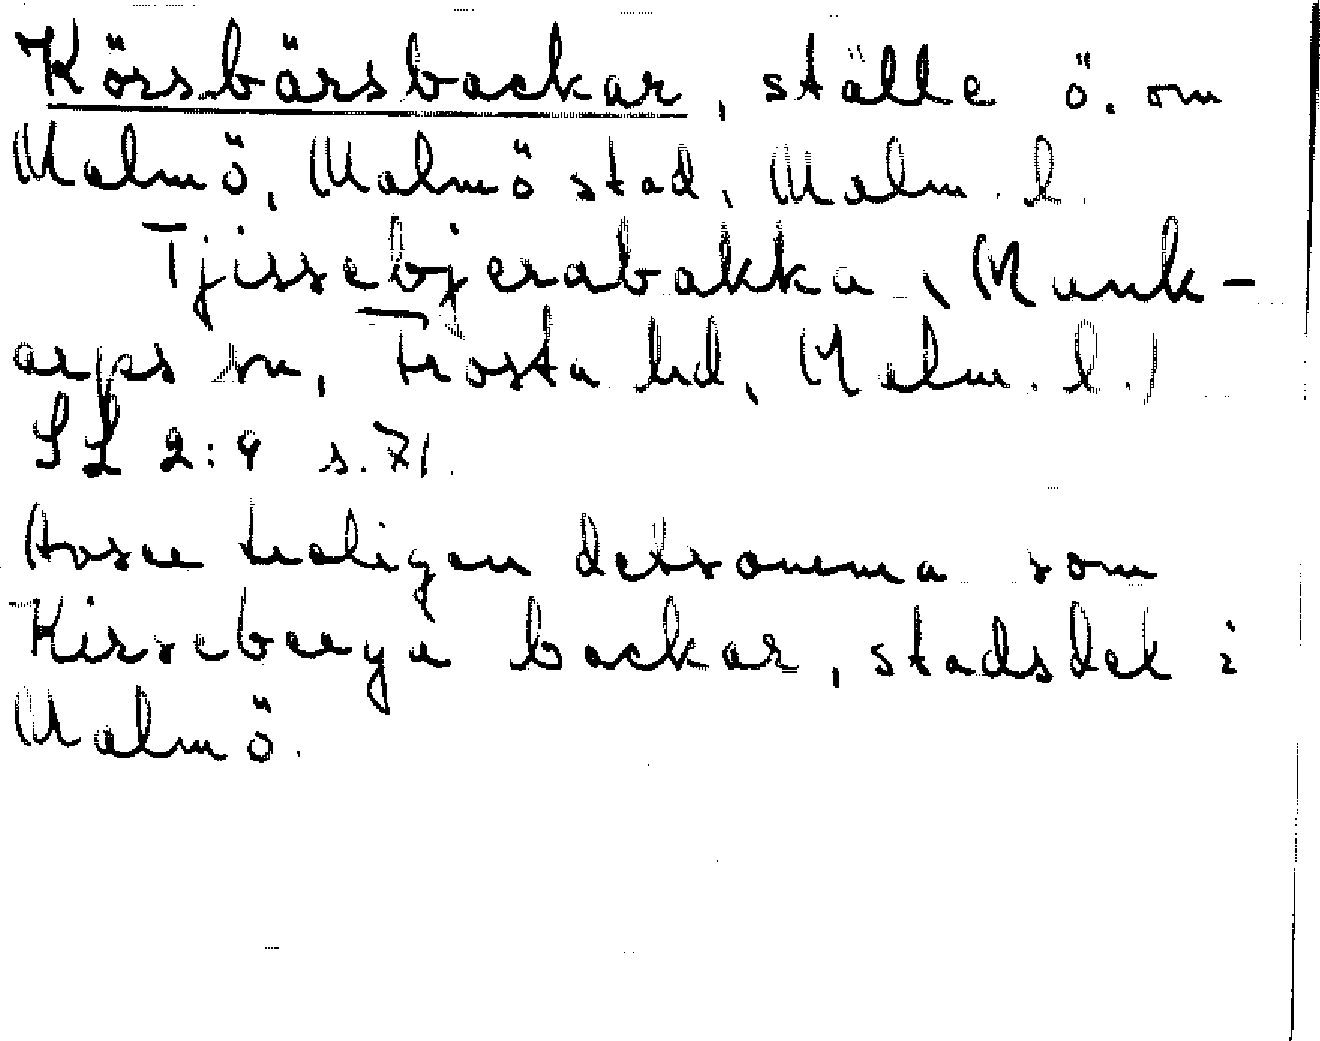 Körsbärsbackar, ställe ö. om
Malmö, Malmö stad, Malm. l.
Tjissebjerabakka (Munk-
arps sn, Frosta hd, Malm. l.)
SL 2:9 s. 71.
troligen detsamma som
Kirseberga backar, stadsdel i
Malmö.